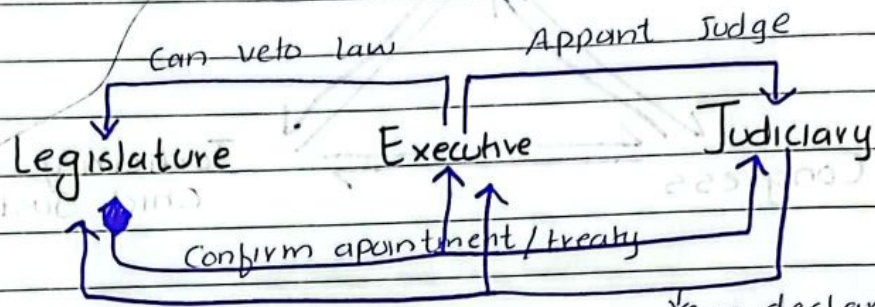 Can veto law Appant Judge
Legislature Executive Judiciary
Confirm apointment / treaty
declar